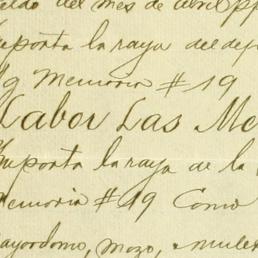 eldo del mes de abril pp
Importa la raya del dep
/g Memoria # 19
Labor Las Me
Importa la raya de la
Memoria # 19 Como
ayordomo, mozo, mulet